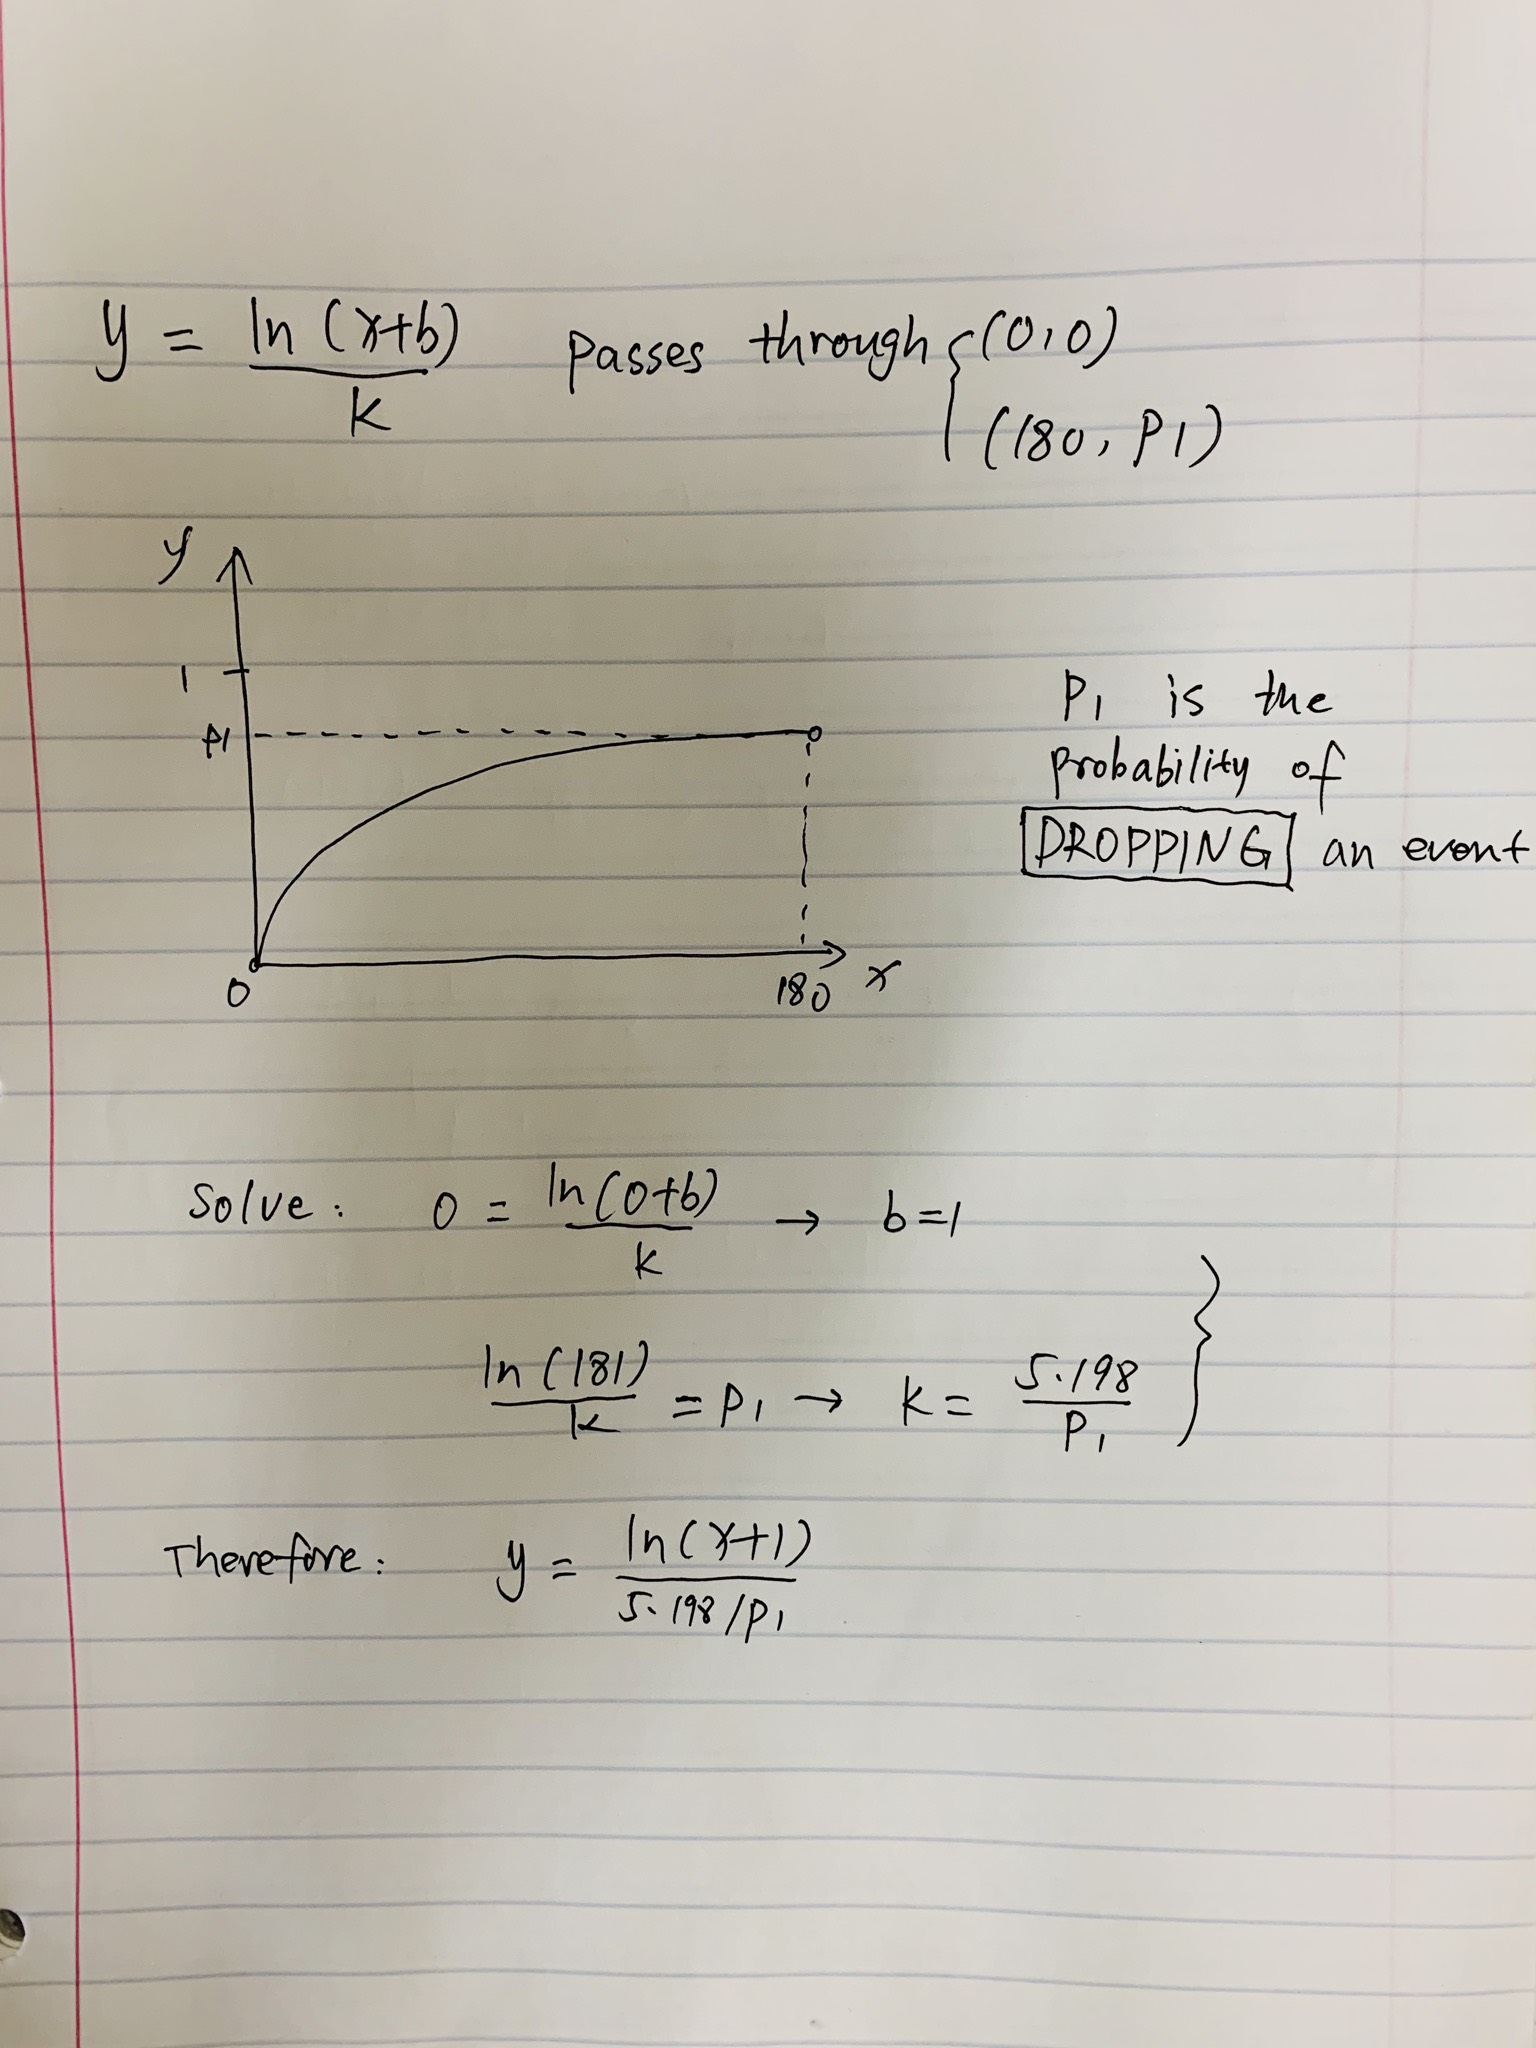 y = ln (x+b) / k passes through { (0,0)
(180, P1)
y
1
P1
0
180 x
P1 is the
probability of
DROPPING an event
Solve: 0 = ln(0+b) / k → b=1
ln(181) / k = P1 → k = 5.198 / P1 }
Therefore: y = ln(x+1) / 5.198/P1